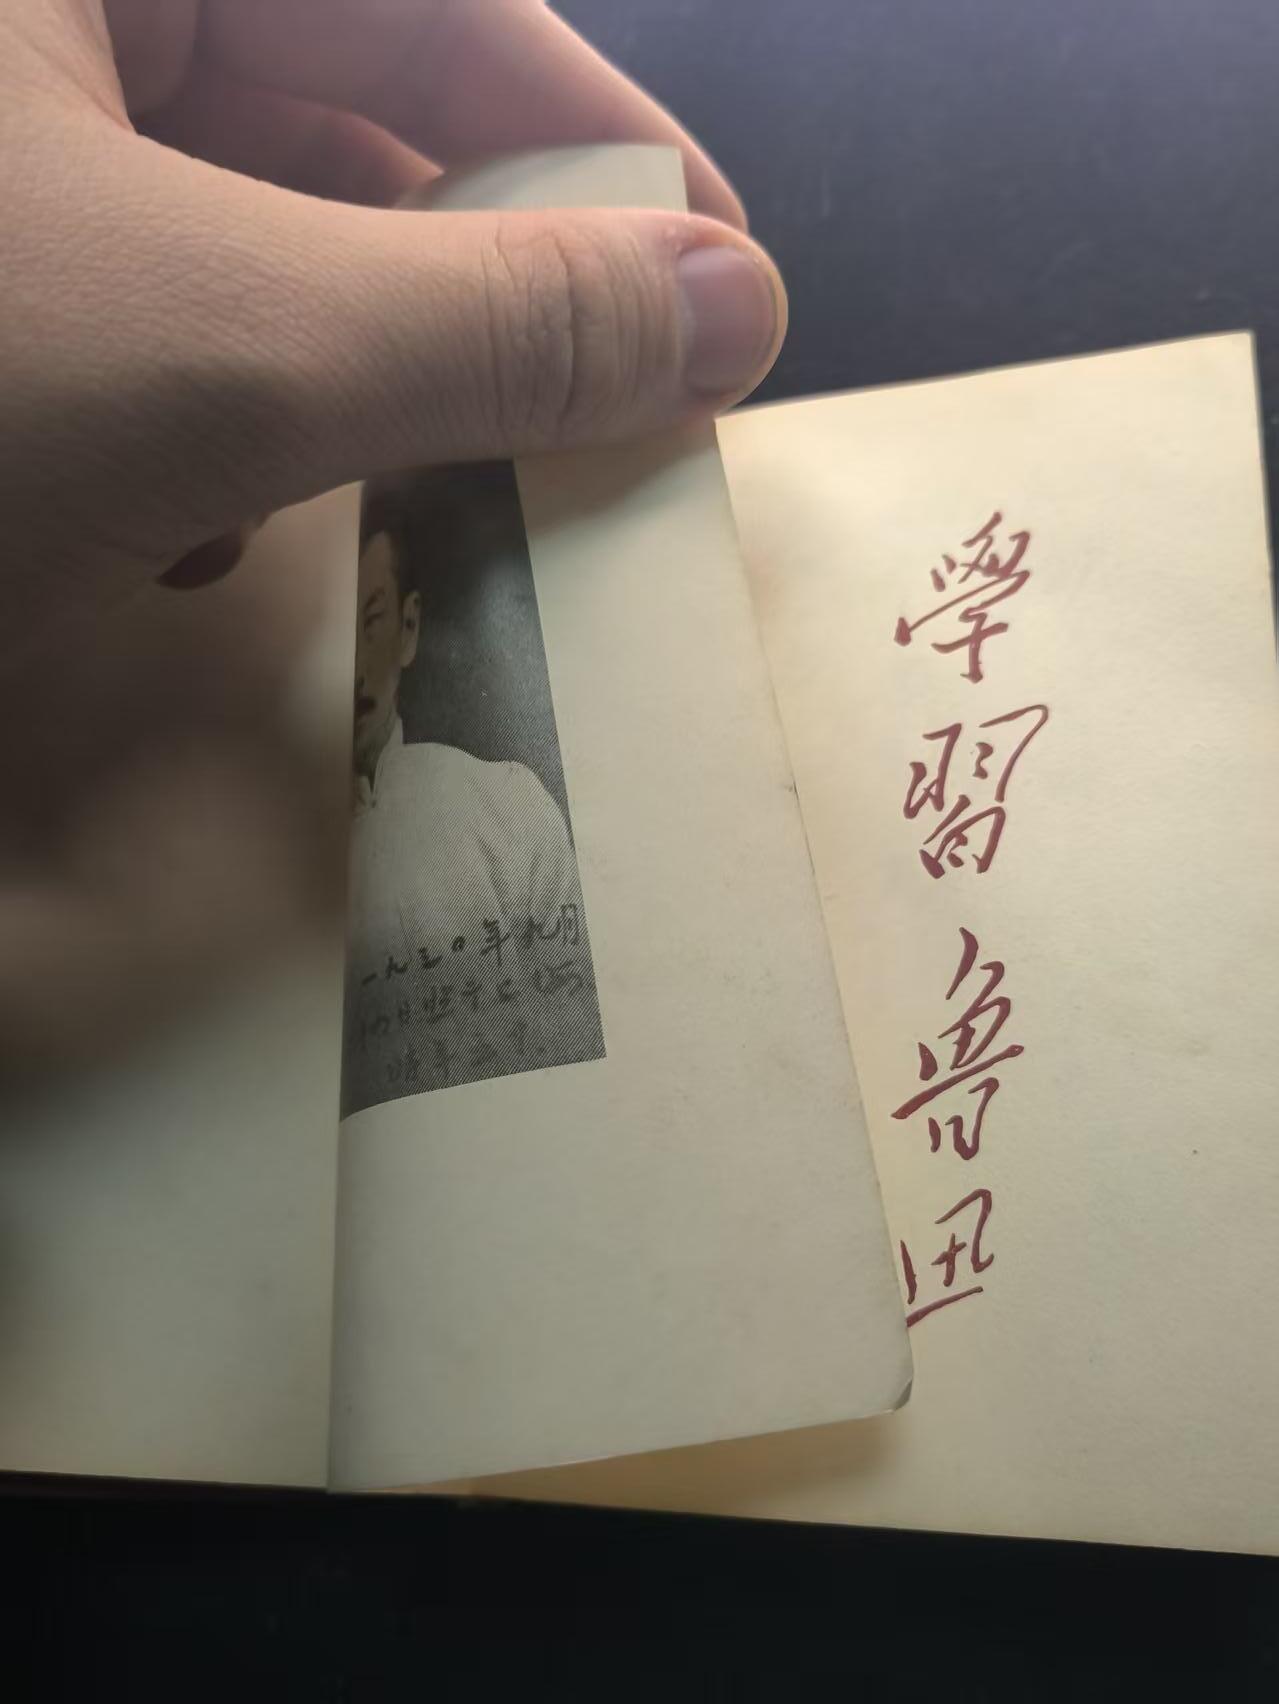 一九三〇年九月
四日照于上海
時年五十.
學習魯迅